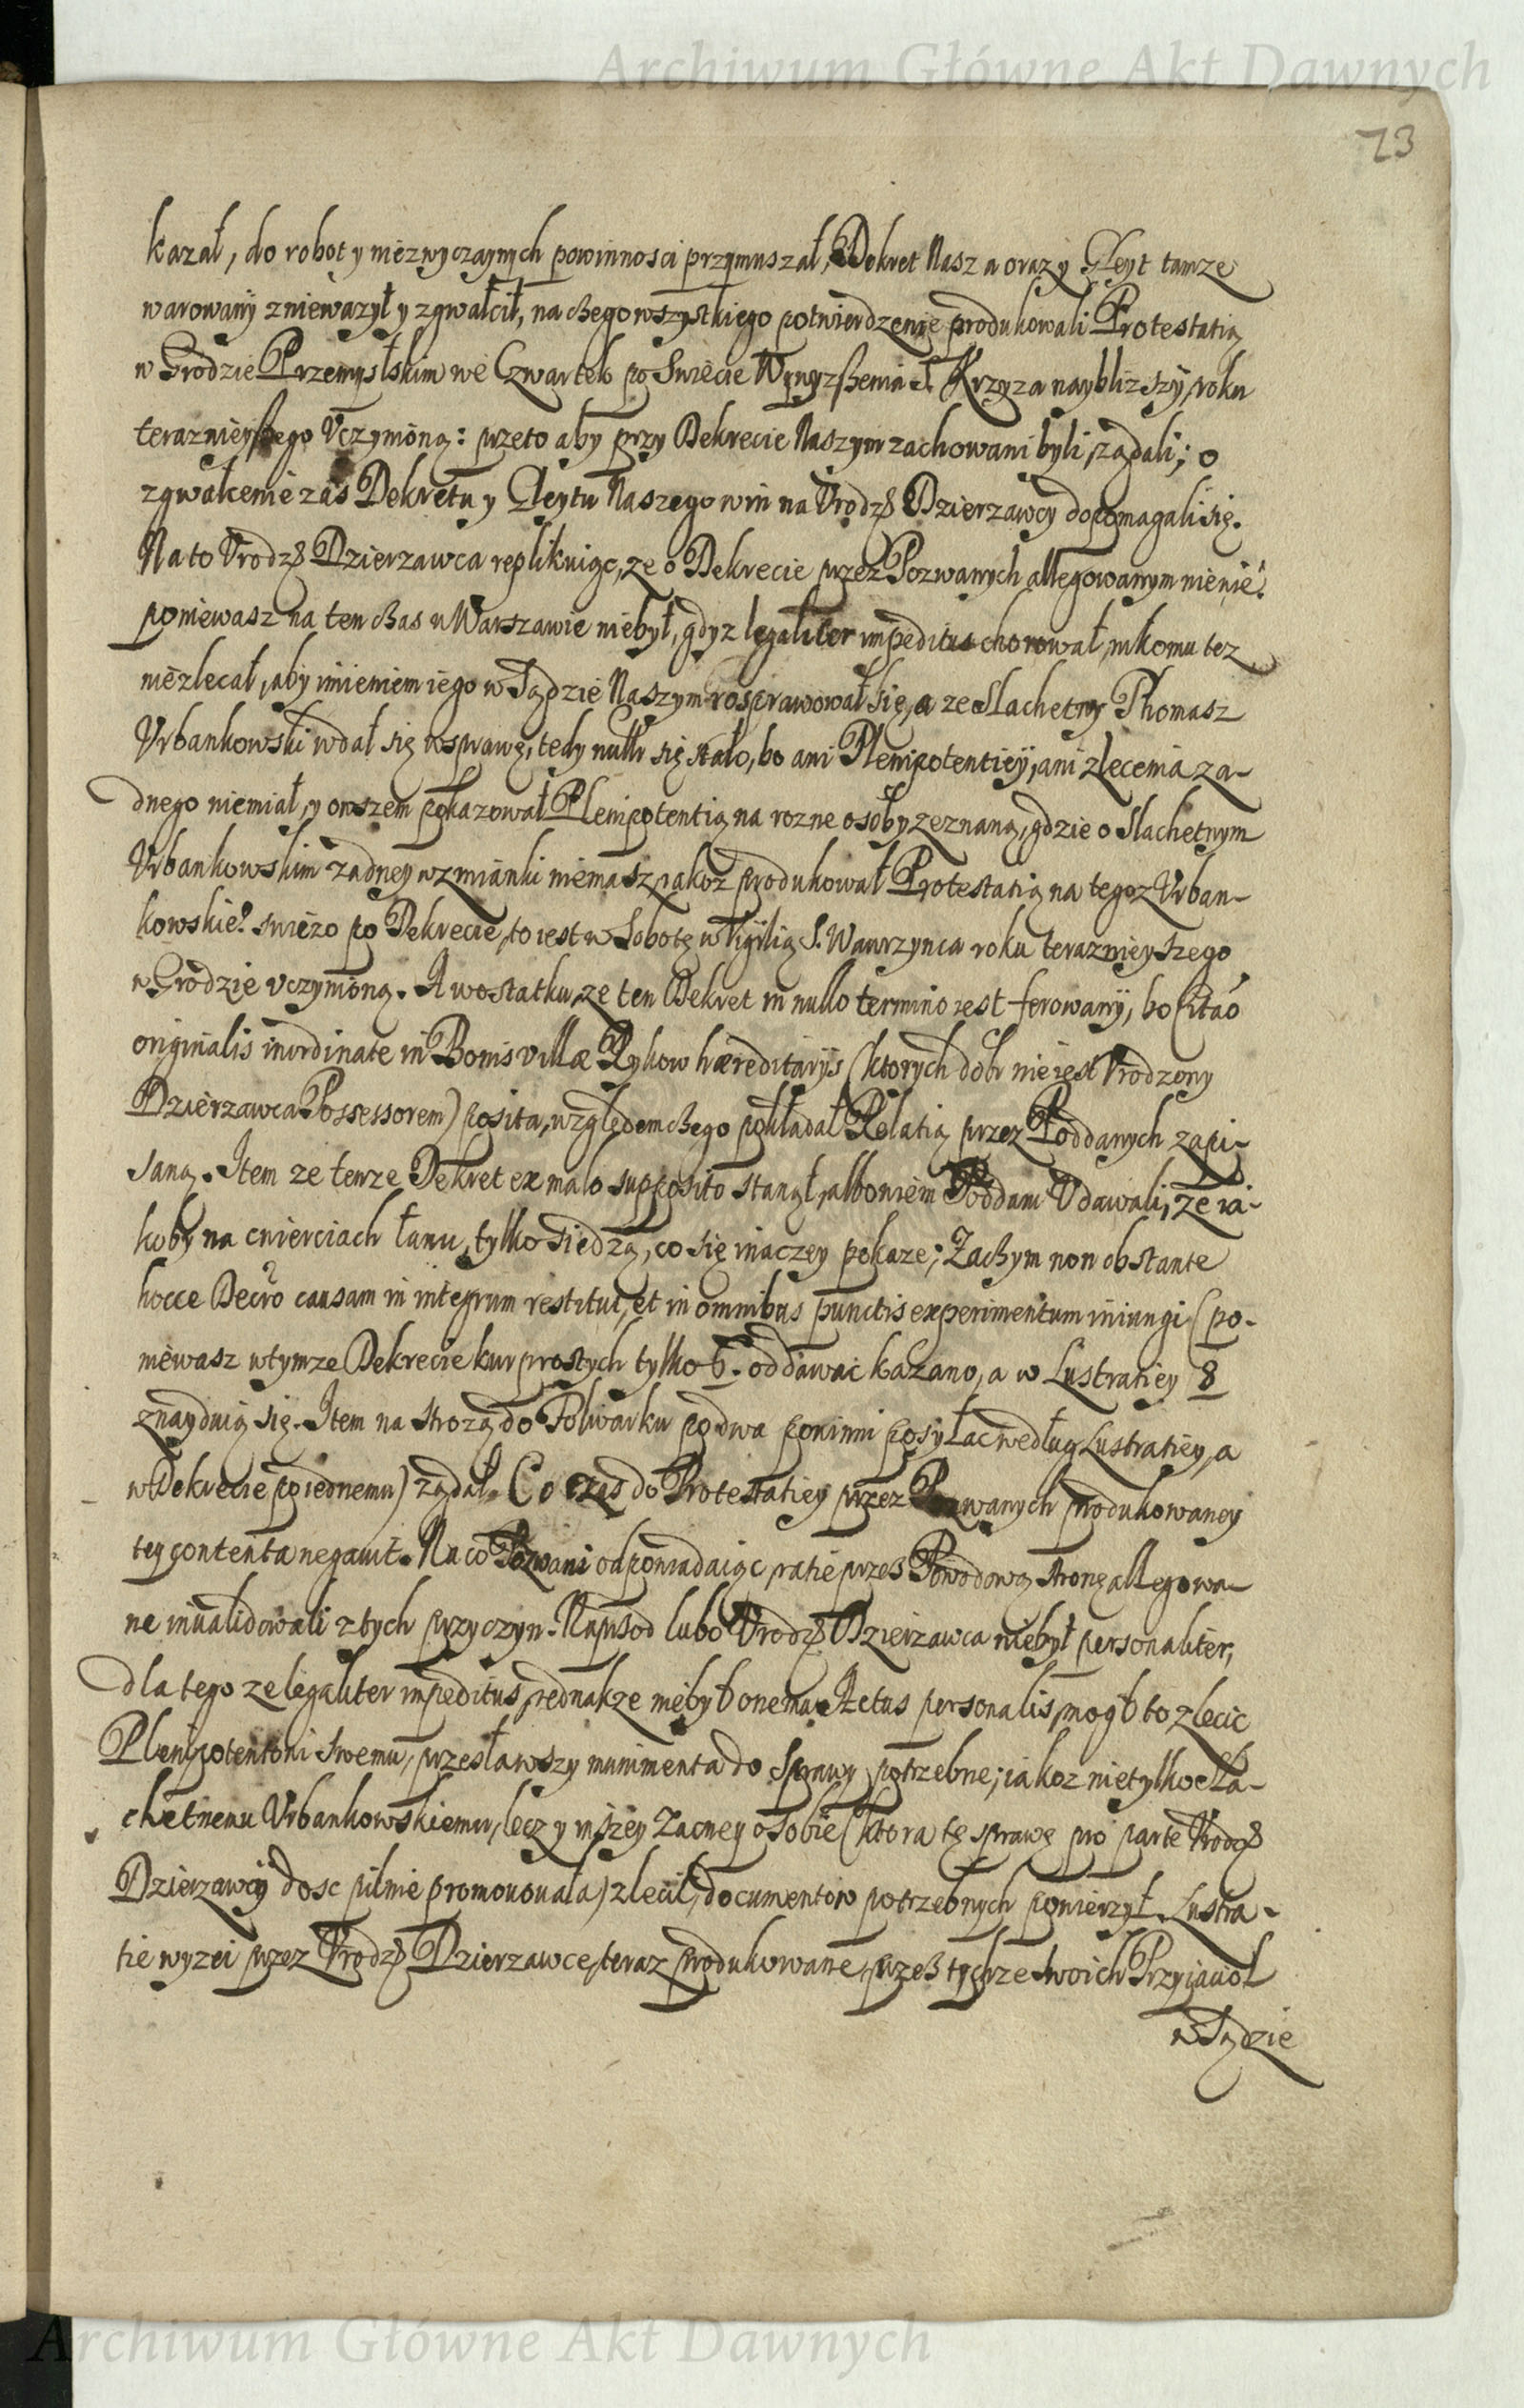 Archiwum Główne Akt Dawnych
73
kazał, do robot y niezwyczaynych powinnosci przymuszał, Dekret Nasz a oraz y Gleyt tamze
warowany zniewazył y zgwałcił, na czego wszystkiego potwierdzenie produkowali Protestatią
w Grodzie Przemyslskim we Czwartek po Swięcie Wywyzszenia S. Krzyza naybliższy, roku
teraznieyszego Uczynioną: przeto aby przy Dekrecie Naszym zachowani byli, ządali; o
zgwałcenie zas Dekretu y Gleytu Naszego win na Urodz. Dzierzawcy dopomagali się.
Na to Urodz. Dzierzawca replikuiąc, ze o Dekrecie przez Pozwanych allegowanym nie wie.
poniewasz na ten czas w Warszawie niebył, gdyz legaliter impeditus chorował, nikomu tez
niezlecał, aby imieniem iego w Sądzie Naszym rosprawował się, a ze Slachetny Thomasz
Urbankowski wdał się w sprawę, tedy nullr. się stało, bo ani Plenipotentiey, ani zlecenia za-
dnego niemiał, y owszem pokazował Plenipotentią na rozne osoby zeznaną, gdzie o Slachetnym
Urbankowskim zadney wzmianki niemasz, iakoz produkował Protestatią na tegoz Urban-
kowskie° swiezo po Dekrecie, to iest w Sobotę w Vigilią S. Wawrzynca roku teraznieyszego
w Grodzie uczynioną. A wostatku, ze ten Dekret in nullo termino iest ferowany, bo Citao
originalis inordinate in Bonis villæ Rykow hæreditarijs (ktorych dobr nie iest Urodzony
Dzierzawca Possessorem) posita, względem czego pokładał Relatią przez Poddanych zapi-
saną. Item ze tenze Dekret ex malo supposito stanął, albowiem Poddani Udawali, ze ia-
koby na cwierciach łanu, tylko siedzą, co się inaczey pokaze; Zaczym non obstante
hocce Decro causam in integrum restitui, et in omnibus punctis experimentum iniungi (po-
niewasz w tymze Dekrecie kur prostych tylko 6. oddawac kazano, a w Lustratiey 8
znayduią się. Item na strozą do Folwarku po dwa powinni posyłac według Lustratiey, a
w Dekrecie po iednemu) ządał. Co zas do Protestatiey przez Pozwanych produkowaney
tey contenta negavit. Na co Pozwani odpowiadaiąc, ratie przez Powodową stronę allegowa-
ne invalidowali z tych przyczyn. Naprzod lubo Urodz. Dzierzawca niebył personaliter,
dla tego ze legaliter impeditus, iednakze niebył onemu Actus personalis, mogł to zlecic
Plenipotentowi swemu, przesławszy munimenta do sprawy potrzebne; iakoz nietylko Sla-
chetnemu Urbankowskiemu, lecz y inszey Zacney osobie (ktora tę sprawę pro parte Urodz.
Dzierzawcy dosc pilnie promovowała) zlecił, documentow potrzebnych powierzył. Lustra-
tie wyzei przez Urodz. Dzierzawce, teraz produkowane, przez tychze swoich Przyiacioł
w Sądzie
Archiwum Główne Akt Dawnych